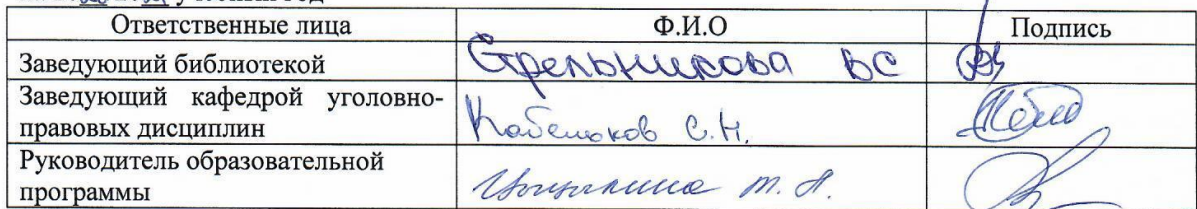 Ответственные лица Ф.И.О Подпись
Заведующий библиотекой Стрельникова ВС
Заведующий кафедрой уголовно-
правовых дисциплин С.Н.
Руководитель образовательной
программы